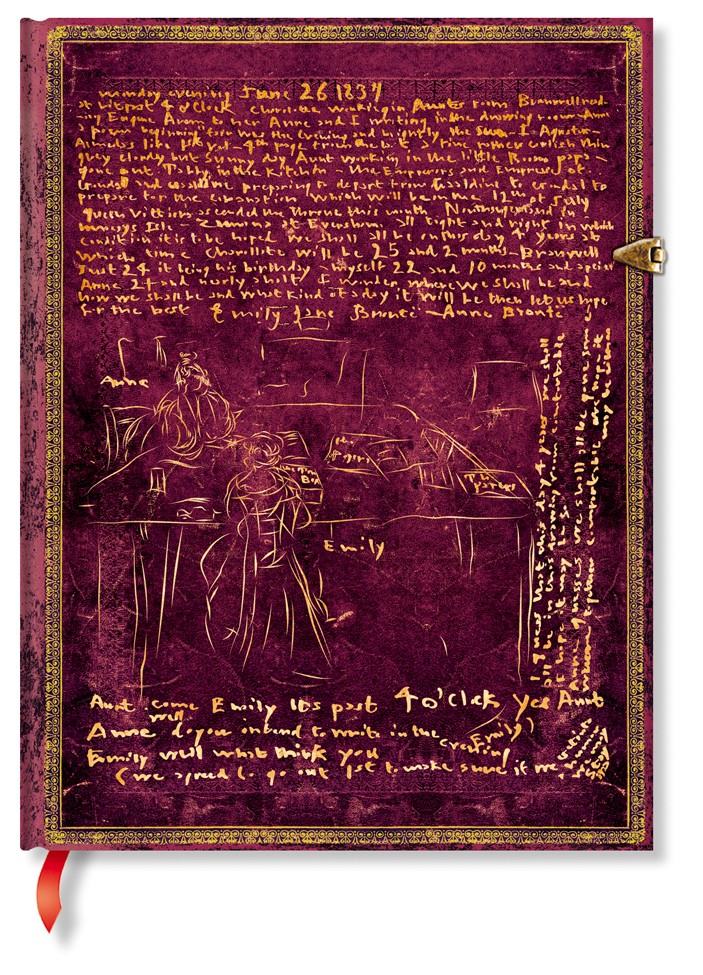 monday evening June 26 1837
4 o'Clock Charlotte working in Aunts room Branwell
Eugene Aram to her Anne and I writing in the drawing room Anne
a poem beginning fair was the evening and brightly the sun I Agustus
Almedas life 1st v 4th page from the last
grey cloudy but sunny day Aunt working in the little Room papa
gone out Tabby in the Kitchin the Emperors and Empreses of
Gondal and preparing to depart from Gaaldine to Gondal to
prepare for the coronation which will be on the 12th of July
Queen Vittiora ascended the throne this month Northangerland in
Monceys Isle Zamorna at Evesham all tight and right in which
condition it is to be hoped we shall all be on this day 4 years at
which time Charlotte will be 25 and 2 months Branwell
Just 24 it being his birthday myself 22 and 10 months and a piece
Anne 21 and nearly a half I wonder where we shall be and
how we shall be and what kind of a day it will be then let us hope
for the best Emily Jane Brontë - Anne Brontë
Anne
The
papers
The
Tin
Box
Emily
I guess that this day 4 years we shall
all be in this drawing room comfortable
I hope it may be so
Anne guesses we shall all be gone somewhere
together comfortable
Aunt come Emily Its past 4 o'Clock yes Aunt
Anne well do you intend to write in the evening
Emily well what think you
(we agreed to go out 1st to make sure if we